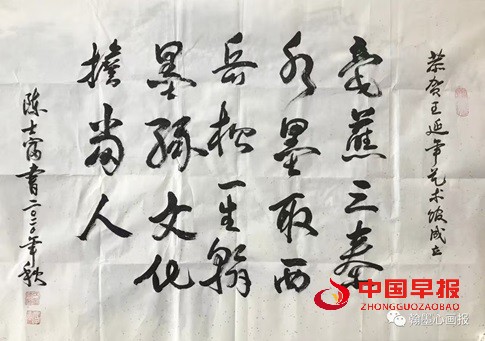 恭贺王延年艺术馆成立
毫蘸三秦
水墨取西
岳松一生翰
墨缘文化
擔当人
陈士富書二〇二〇年秋
中国早报
ZHONGGUOZAOBAO
翰墨心画报